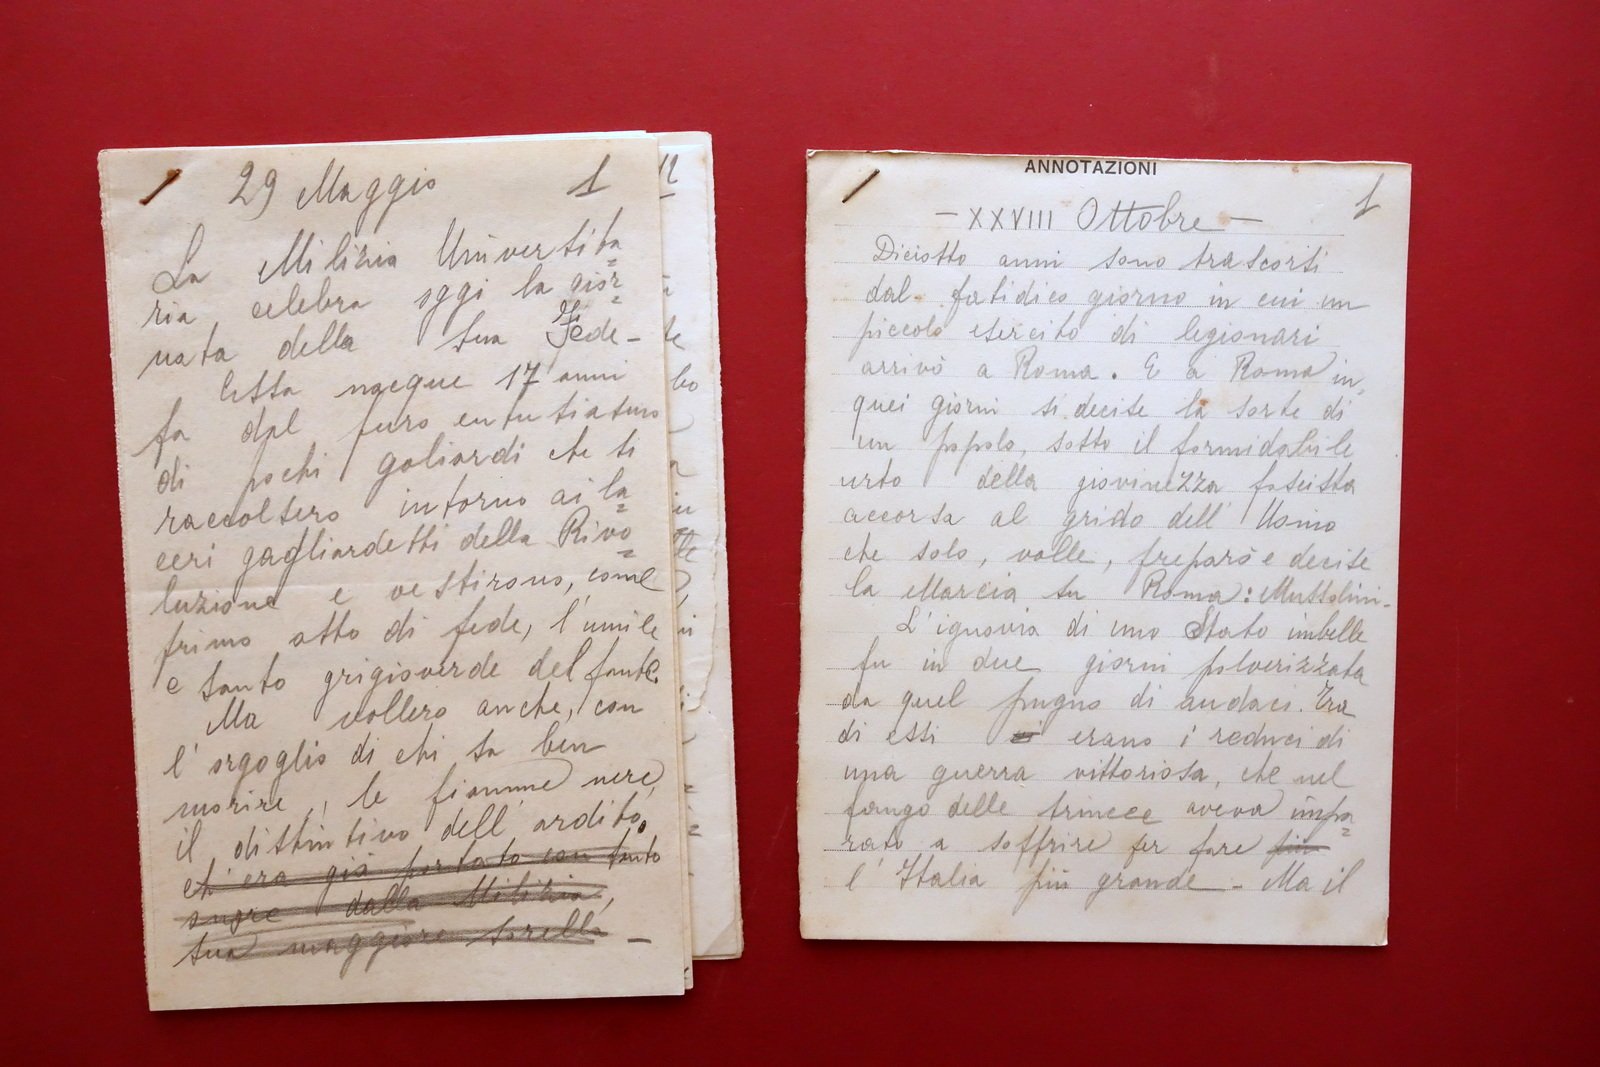 29 Maggio 1
La Milizia Universita
ria celebra oggi la gior
nata della sua Fede-
Essa nacque 17 anni
fa dal puro entusiasmo
di pochi goliardi che si
raccolsero intorno ai la
ceri gagliardetti della Rivo
luzione e vestirono, come
primo atto di fede, l'umile
e santo grigioverde del fante.
Ma vollero anche, con
l'orgoglio di chi sa ben
morire, le fiamme nere,
il distintivo dell'ardito,
ch'era già portato con tanto
onore dalla Milizia,
sua maggiore sorella -
12
ANNOTAZIONI
- XXVIII Ottobre - 1
Diciotto anni sono trascorsi
dal fatidico giorno in cui un
piccolo esercito di legionari
arrivò a Roma. E a Roma in
quei giorni si decise la sorte di
un popolo, sotto il formidabile
urto della giovinezza fascista
accorsa al grido dell'Uomo
che solo, volle, preparò e decise
la Marcia su Roma: Mussolini-
L'ignavia di uno Stato imbelle
fu in due giorni polverizzata
da quel pugno di audaci. Tra
di essi erano i reduci di
una guerra vittoriosa, che nel
fango delle trincee aveva impa
rato a soffrire per fare più
l'Italia più grande - Ma il